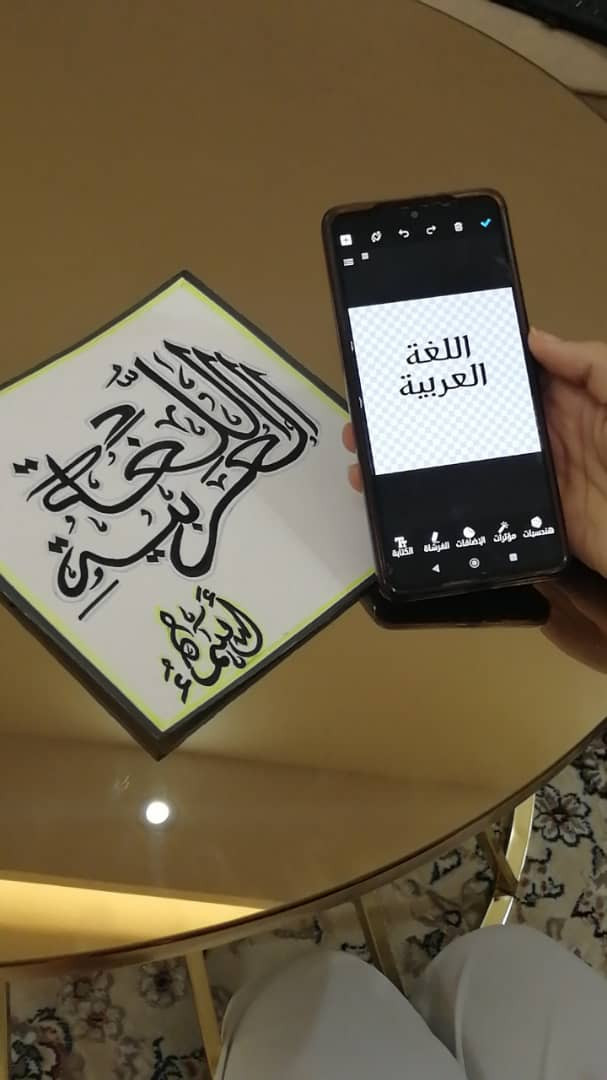 اللغة
العربية
هندسيات مؤثرات الإضافات الفرشاة الكتابة
اللغة
العربية